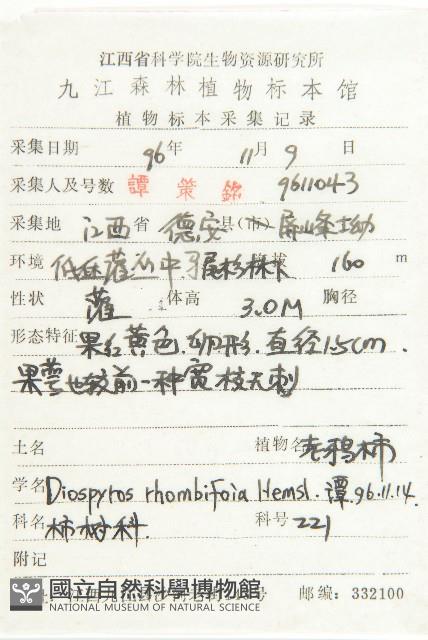 江西省科学院生物资源研究所
九江森林植物标本馆
植物标本采集记录
采集日期 96年 11月 9 日
采集人及号数 譚策銘 9611043
采集地 江西省 德安县(市) 屏峰
环境 低丘灌丛中 杉林下 160 m
性状 灌 体高 3.0M 胸径
形态特征 果红黄色.卵形.直径1.5cm.
果萼也较前一种宽 枝无刺
土名 植物名 老鸦柿
学名 Diospyros rhombifoia Hemsl. 譚 96.11.14.
科名 柿树科. 科号 221
附记
邮编: 332100
國立自然科學博物館
NATIONAL MUSEUM OF NATURAL SCIENCE